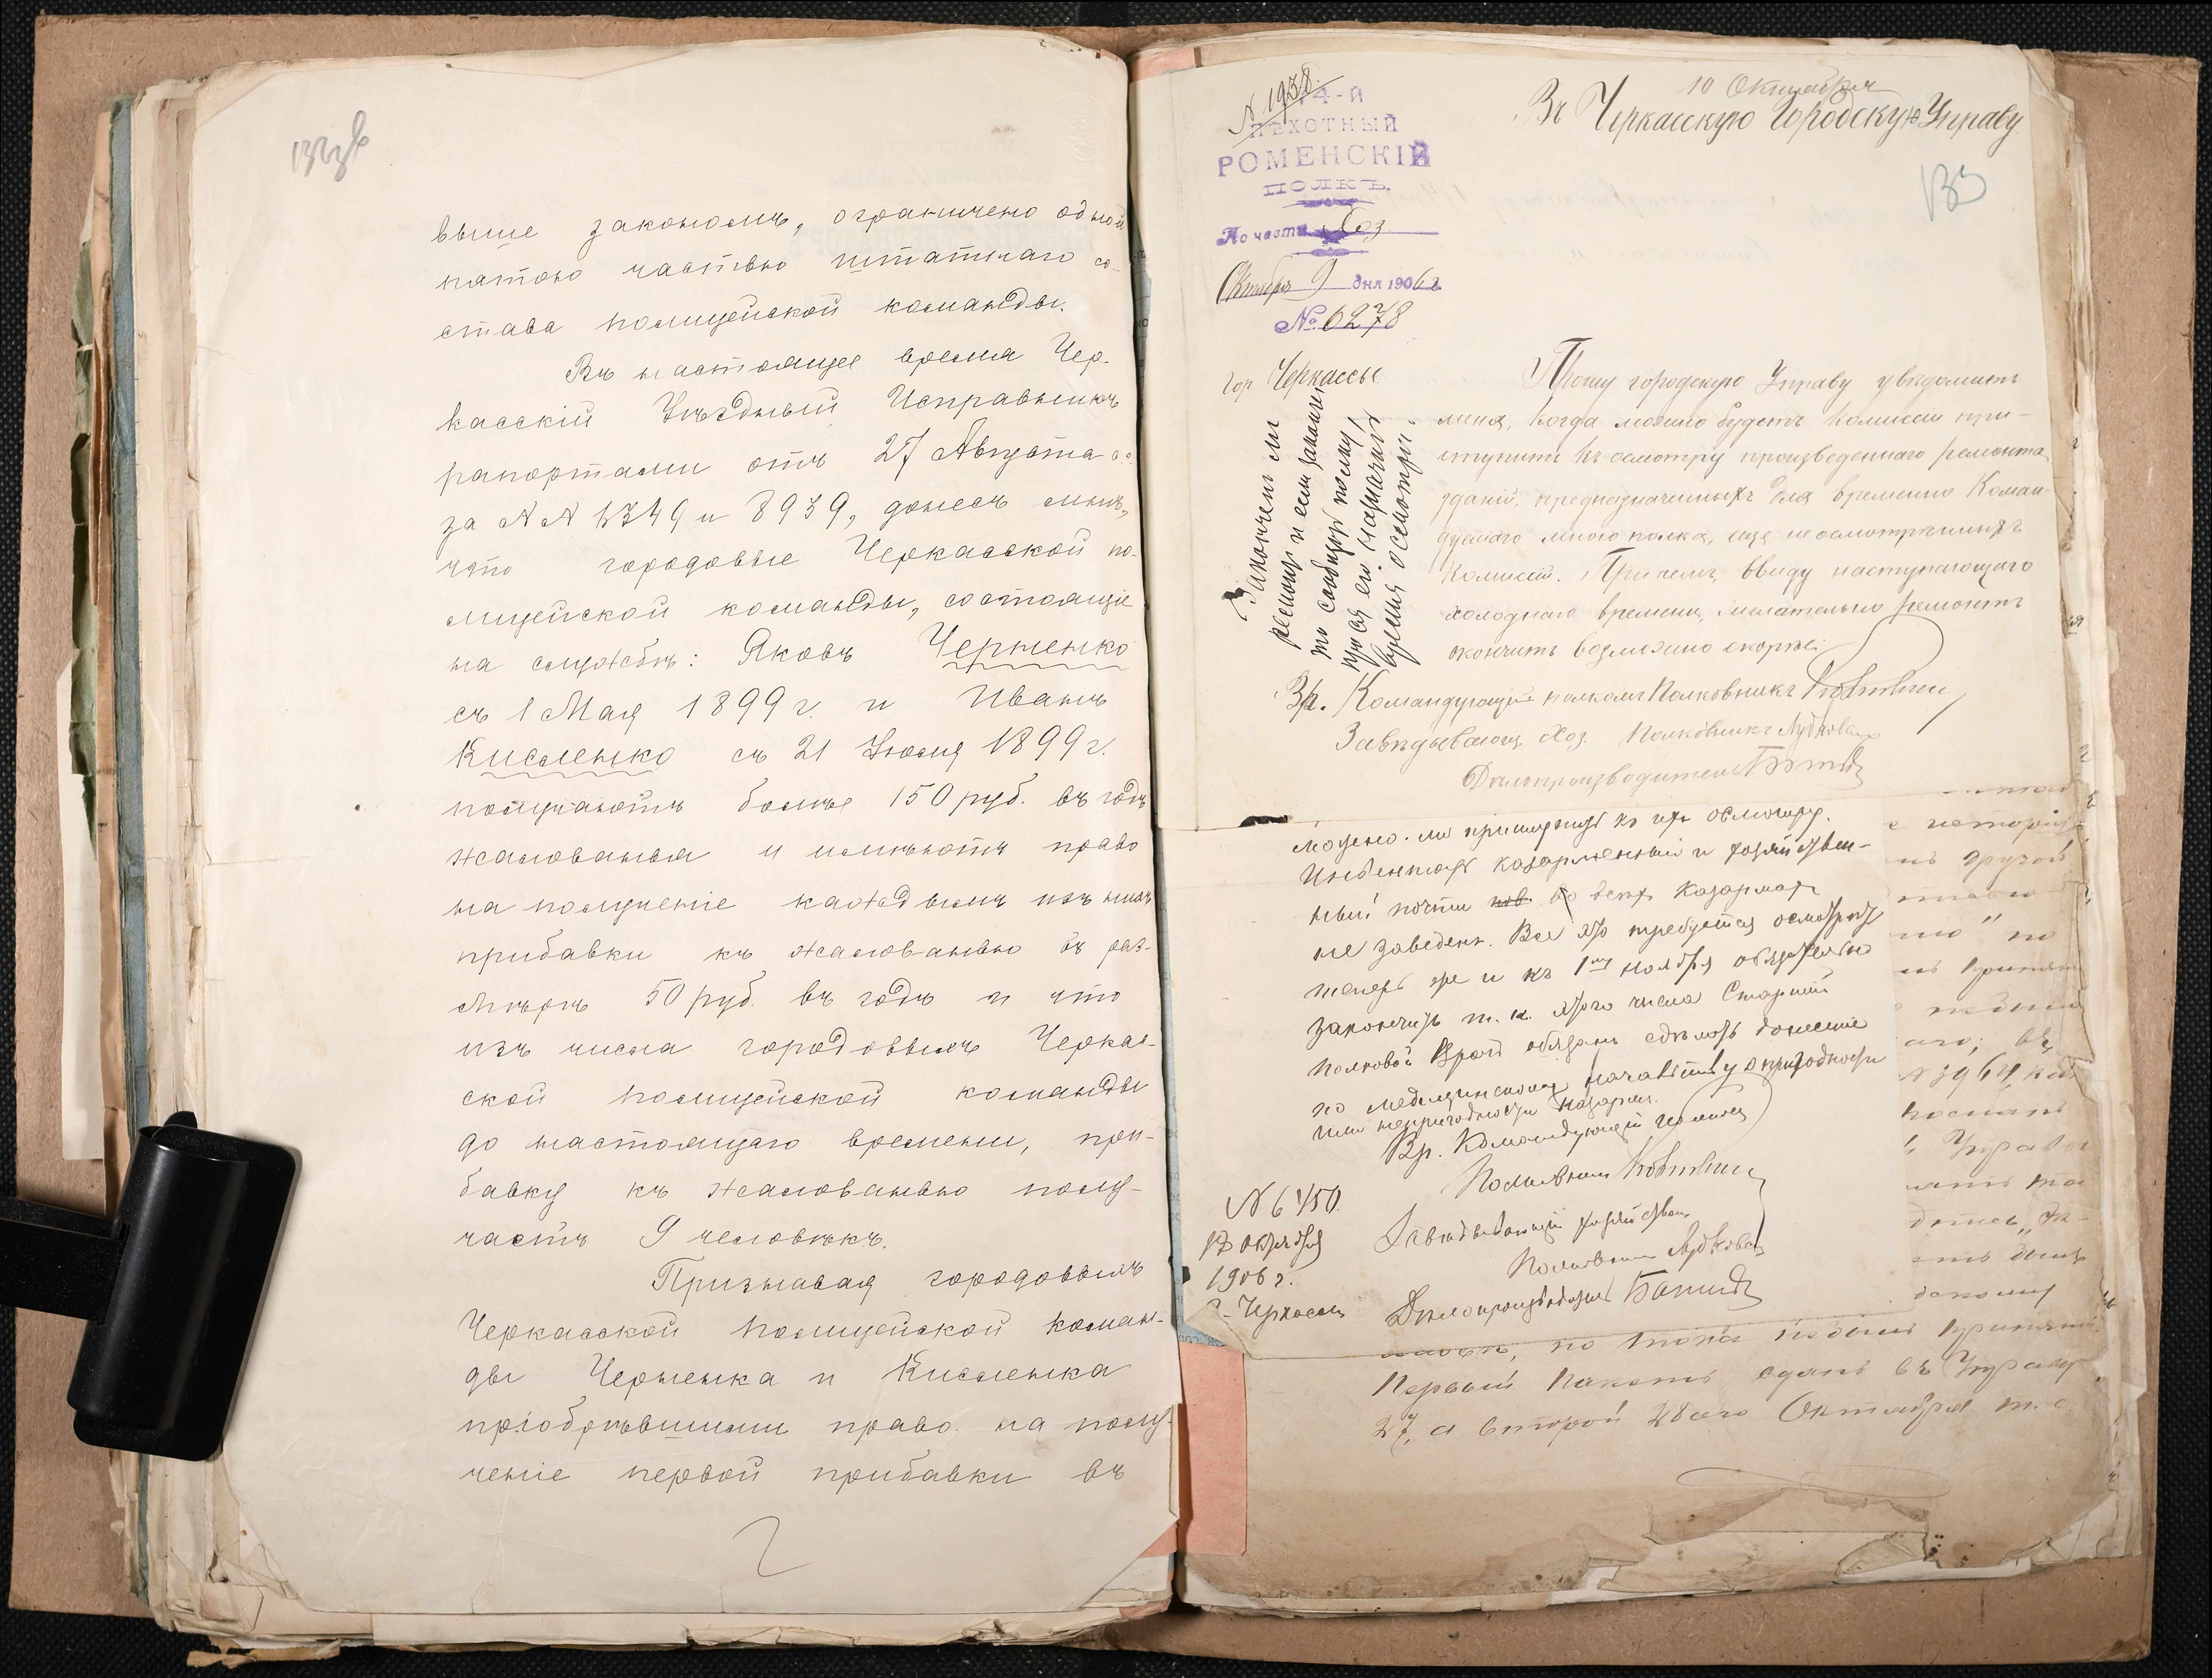 выше закономъ, ограничено одной
пятою частью штатнаго со-
става полицейской команды.
Въ настоящее время Чер-
касскій Уѣздный Исправникъ
рапортами отъ 27 Августа с.г.
за №№ 8939, донесъ мнѣ,
что городовые Черкасской по-
лицейской команды, состоящіе
на службѣ: Яковъ Черненко
съ 1 Мая 1899 г. и Иванъ
Кисленко съ 21 Іюля 1899 г.
получаютъ болѣе 150 руб. въ годъ
жалованья и имѣютъ право
на полученіе каждымъ изъ нихъ
прибавки къ жалованью въ раз-
мѣрѣ 50 руб. въ годъ и что
изъ числа городовыхъ Черкас-
ской полицейской команды
до настоящаго времени, при-
бавку къ жалованью полу-
чаютъ 9 человѣкъ.
Признавая городовыхъ
Черкасской полицейской коман-
ды Черненка и Кисленка
пріобрѣвшими право на полу-
ченіе первой прибавки въ
№ 1938.
4-й
ПѢХОТНЫЙ
РОМЕНСКІЙ
ПОЛКЪ.
По части Хоз
Октября 9 дня 1906 г.
№ 6278
Гор Черкассы
10 Октября
Въ Черкасскую Городскую Управу
133
Прошу городскую Управу увѣдомить
меня, когда можно будетъ Комиссіи при-
ступить къ осмотру произведеннаго ремонта
зданій, предназначенныхъ для временно Коман-
дуемаго мною полка, еще не осмотрѣнныхъ
Комиссіей. Причемъ, ввиду наступающаго
холоднаго времени, желательно ремонтъ
окончить возможно скорѣе.
Вр. Командующій полкомъ Полковникъ
Завѣдывающ. Хоз. Полковникъ
Дѣлопроизводитель
Законченъ ли
ремонтъ и если законченъ
то сообщить полку,
прося его назначить
время осмотра.
можно-ли приступить къ ихъ осмотру.
Инвентарь казарменный и хозяйствен-
ный почти во всѣхъ казармахъ
не заведенъ. Все это требуется осмотрѣть
теперь же и къ 1му ноября обязательно
закончить т. к. этого числа Старшій
полковой Врачъ обязанъ сдѣлать донесеніе
по медицинскому начальству о пригодности
или непригодности казармъ.
Вр. Командующій полкомъ
Полковникъ
№ 6450.
октября
1906 г.
г. Черкассы
Завѣдывающій хозяйствомъ
Полковникъ
Дѣлопроизводитель
№ 3964,
Управы
но тоже
Первый пакетъ сданъ въ Управу
27, а второй 28ого Октября т. г.